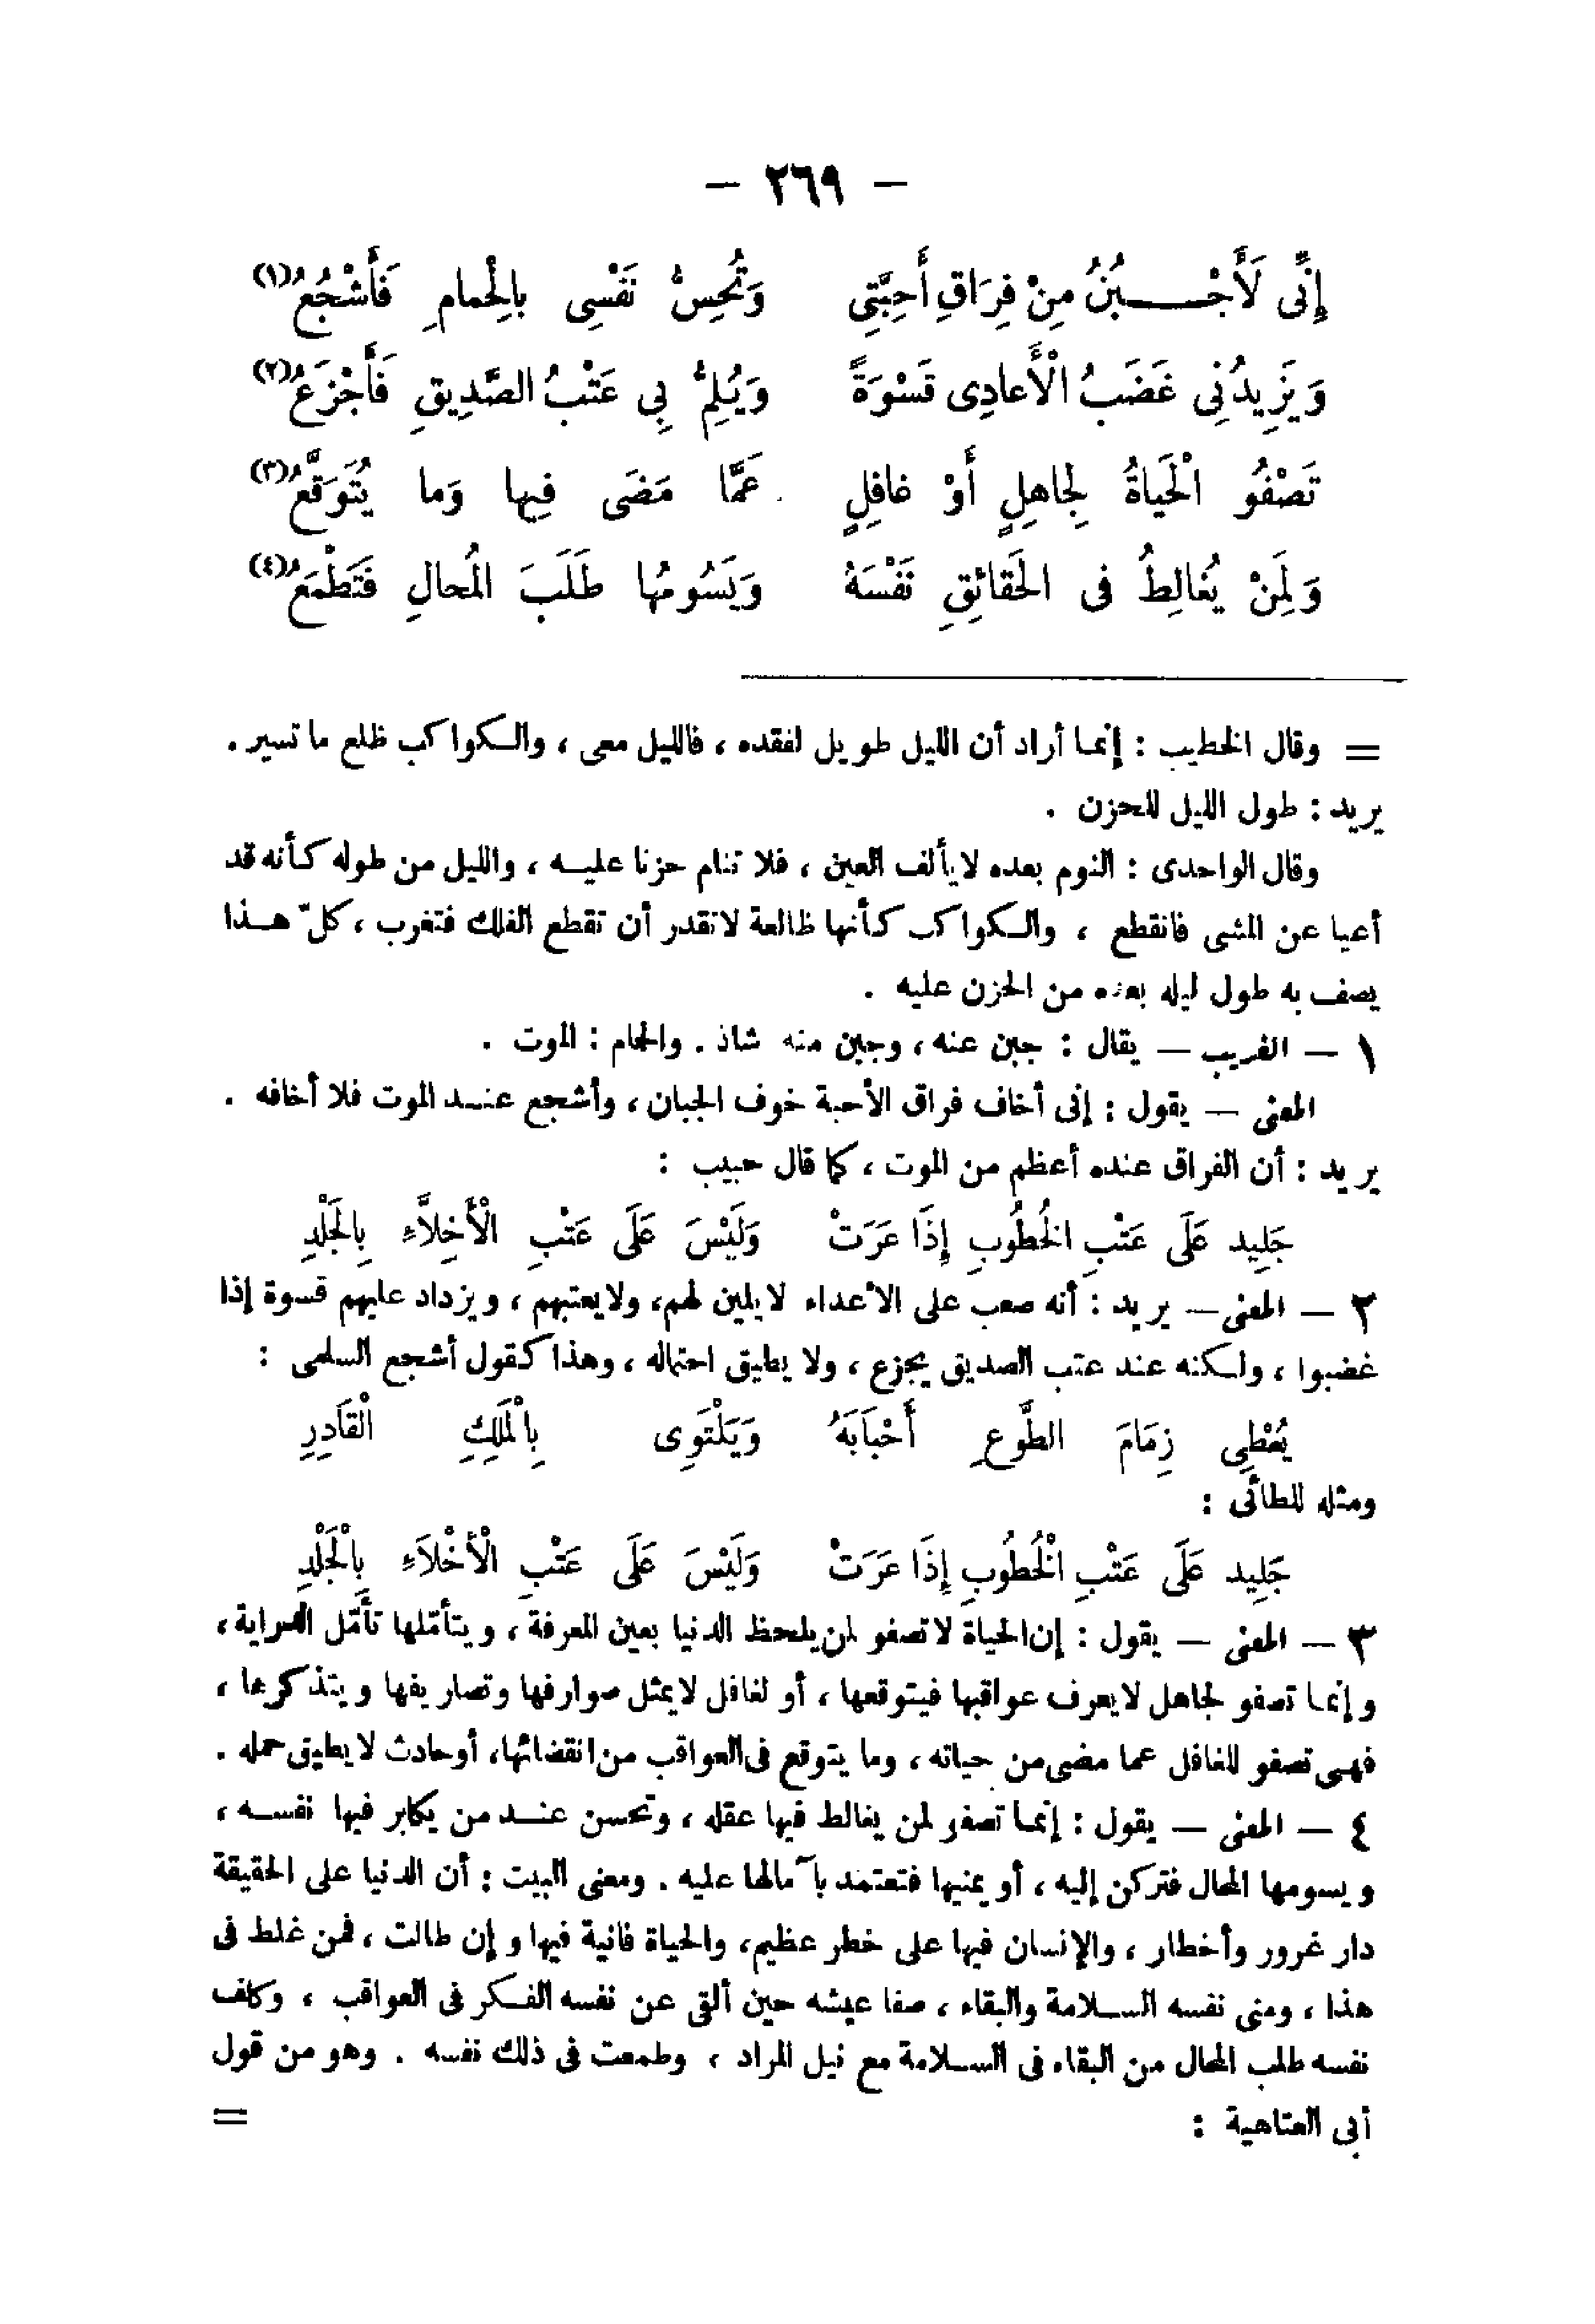 — ٢٦٩ —
إِنِّى لَأَجْـــبُنُ مِنْ فِرَاقِ أَحِبَّتِى وَتُحِسُّ نَفْسِى بِالْحِمامِ فَأَشْجُعُ(١)
وَيَزِيدُنِى غَضَبُ الْأَعادِى قَسْوَةً وَيُلِمُّ بِى عَتْبُ الصَّدِيقِ فَأَجْزَعُ(٢)
تَصْفُو الْحَياةُ لِجَاهِلٍ أَوْ غافِلٍ عَمَّا مَضَى فِيها وَما يُتَوَقَّعُ(٣)
وَلِمَنْ يُغالِطُ فى الحَقائِقِ نَفْسَهُ وَيَسُومُها طَلَبَ الْمُحالِ فَتَطْمَعُ(٤)
= وقال الخطيب : إنما أراد أن الليل طويل لفقده ، فالليل معى ، والكواكب ظلع ما تسير .
يريد : طول الليل للحزن .
وقال الواحدى : النوم بعده لا يألف العين ، فلا تنام حزنا عليه ، والليل من طوله كأنه قد
أعيا عن المشى فانقطع ، والكواكب كأنها ظالعة لا تقدر أن تقطع الفلك فتغرب ، كلّ هذا
يصف به طول ليله بعده من الحزن عليه .
١ — الغريب — يقال : جبن عنه ، وجبن منه شاذ . والحمام : الموت .
المعنى — يقول : إنى أخاف فراق الأحبة خوف الجبان ، وأشجع عند الموت فلا أخافه .
يريد : أن الفراق عنده أعظم من الموت ، كما قال حبيب :
جَلِيد عَلَى عَتْبِ الخُطُوبِ إِذَا عَرَتْ وَلَيْسَ عَلَى عَتْبِ الْأَخِلاَّءِ بِالْجَلْدِ
٢ — المعنى — يريد : أنه صعب على الأعداء لا يلين لهم، ولا يعتبهم ، ويزداد عليهم قسوة إذا
غضبوا ، ولكنه عند عتب الصديق يجزع ، ولا يطيق احتماله ، وهذا كقول أشجع السلمى :
يُعْطِى زِمَامَ الطَّوْعِ أَحْبَابَهُ وَيَلْتَوِى بِالْمَلِكِ الْقَادِرِ
ومثله للطائى :
جَلِيد عَلَى عَتْبِ الْخُطُوبِ إِذَا عَرَتْ وَلَيْسَ عَلَى عَتْبِ الْأَخْلاَءِ بِالْجَلْدِ
٣ — المعنى — يقول : إن الحياة لا تصفو لمن يلحظ الدنيا بعين المعرفة ، ويتأملها تأمّل الدراية،
وإنما تصفو لجاهل لا يعرف عواقبها فيتوقعها ، أو لغافل لا يمثل صوارفها وتصاريفها ويتذكرها ،
فهى تصفو للغافل عما مضى من حياته ، وما يتوقع فى العواقب من انقضائها، أو حادث لا يطيق حمله .
٤ — المعنى — يقول : إنما تصفو لمن يغالط فيها عقله ، وتحسن عند من يكابر فيها نفسه ،
ويسومها المحال فتركن إليه ، أو يمنيها فتعتمد بآمالها عليه . ومعنى البيت : أن الدنيا على الحقيقة
دار غرور وأخطار ، والإنسان فيها على خطر عظيم، والحياة فانية فيها وإن طالت ، فمن غلط فى
هذا ، ومنى نفسه السلامة والبقاء ، صفا عيشه حين ألقى عن نفسه الفكر فى العواقب ، وكلف
نفسه طلب المحال من البقاء فى السلامة مع نيل المراد ، وطمعت فى ذلك نفسه . وهو من قول
أبى العتاهية : =